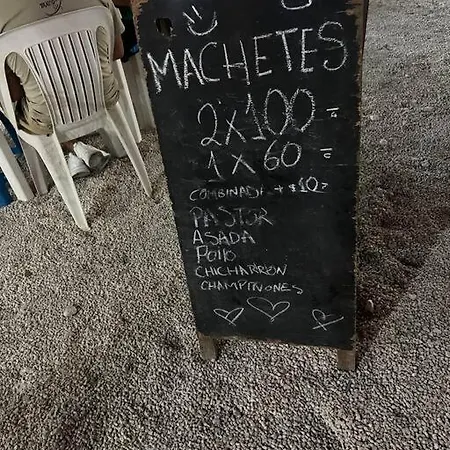 MACHETES
2x100=
1x60=
COMBINADA + $10=
PASTOR
ASADA
Pollo
CHICHARRON
CHAMPIÑONES